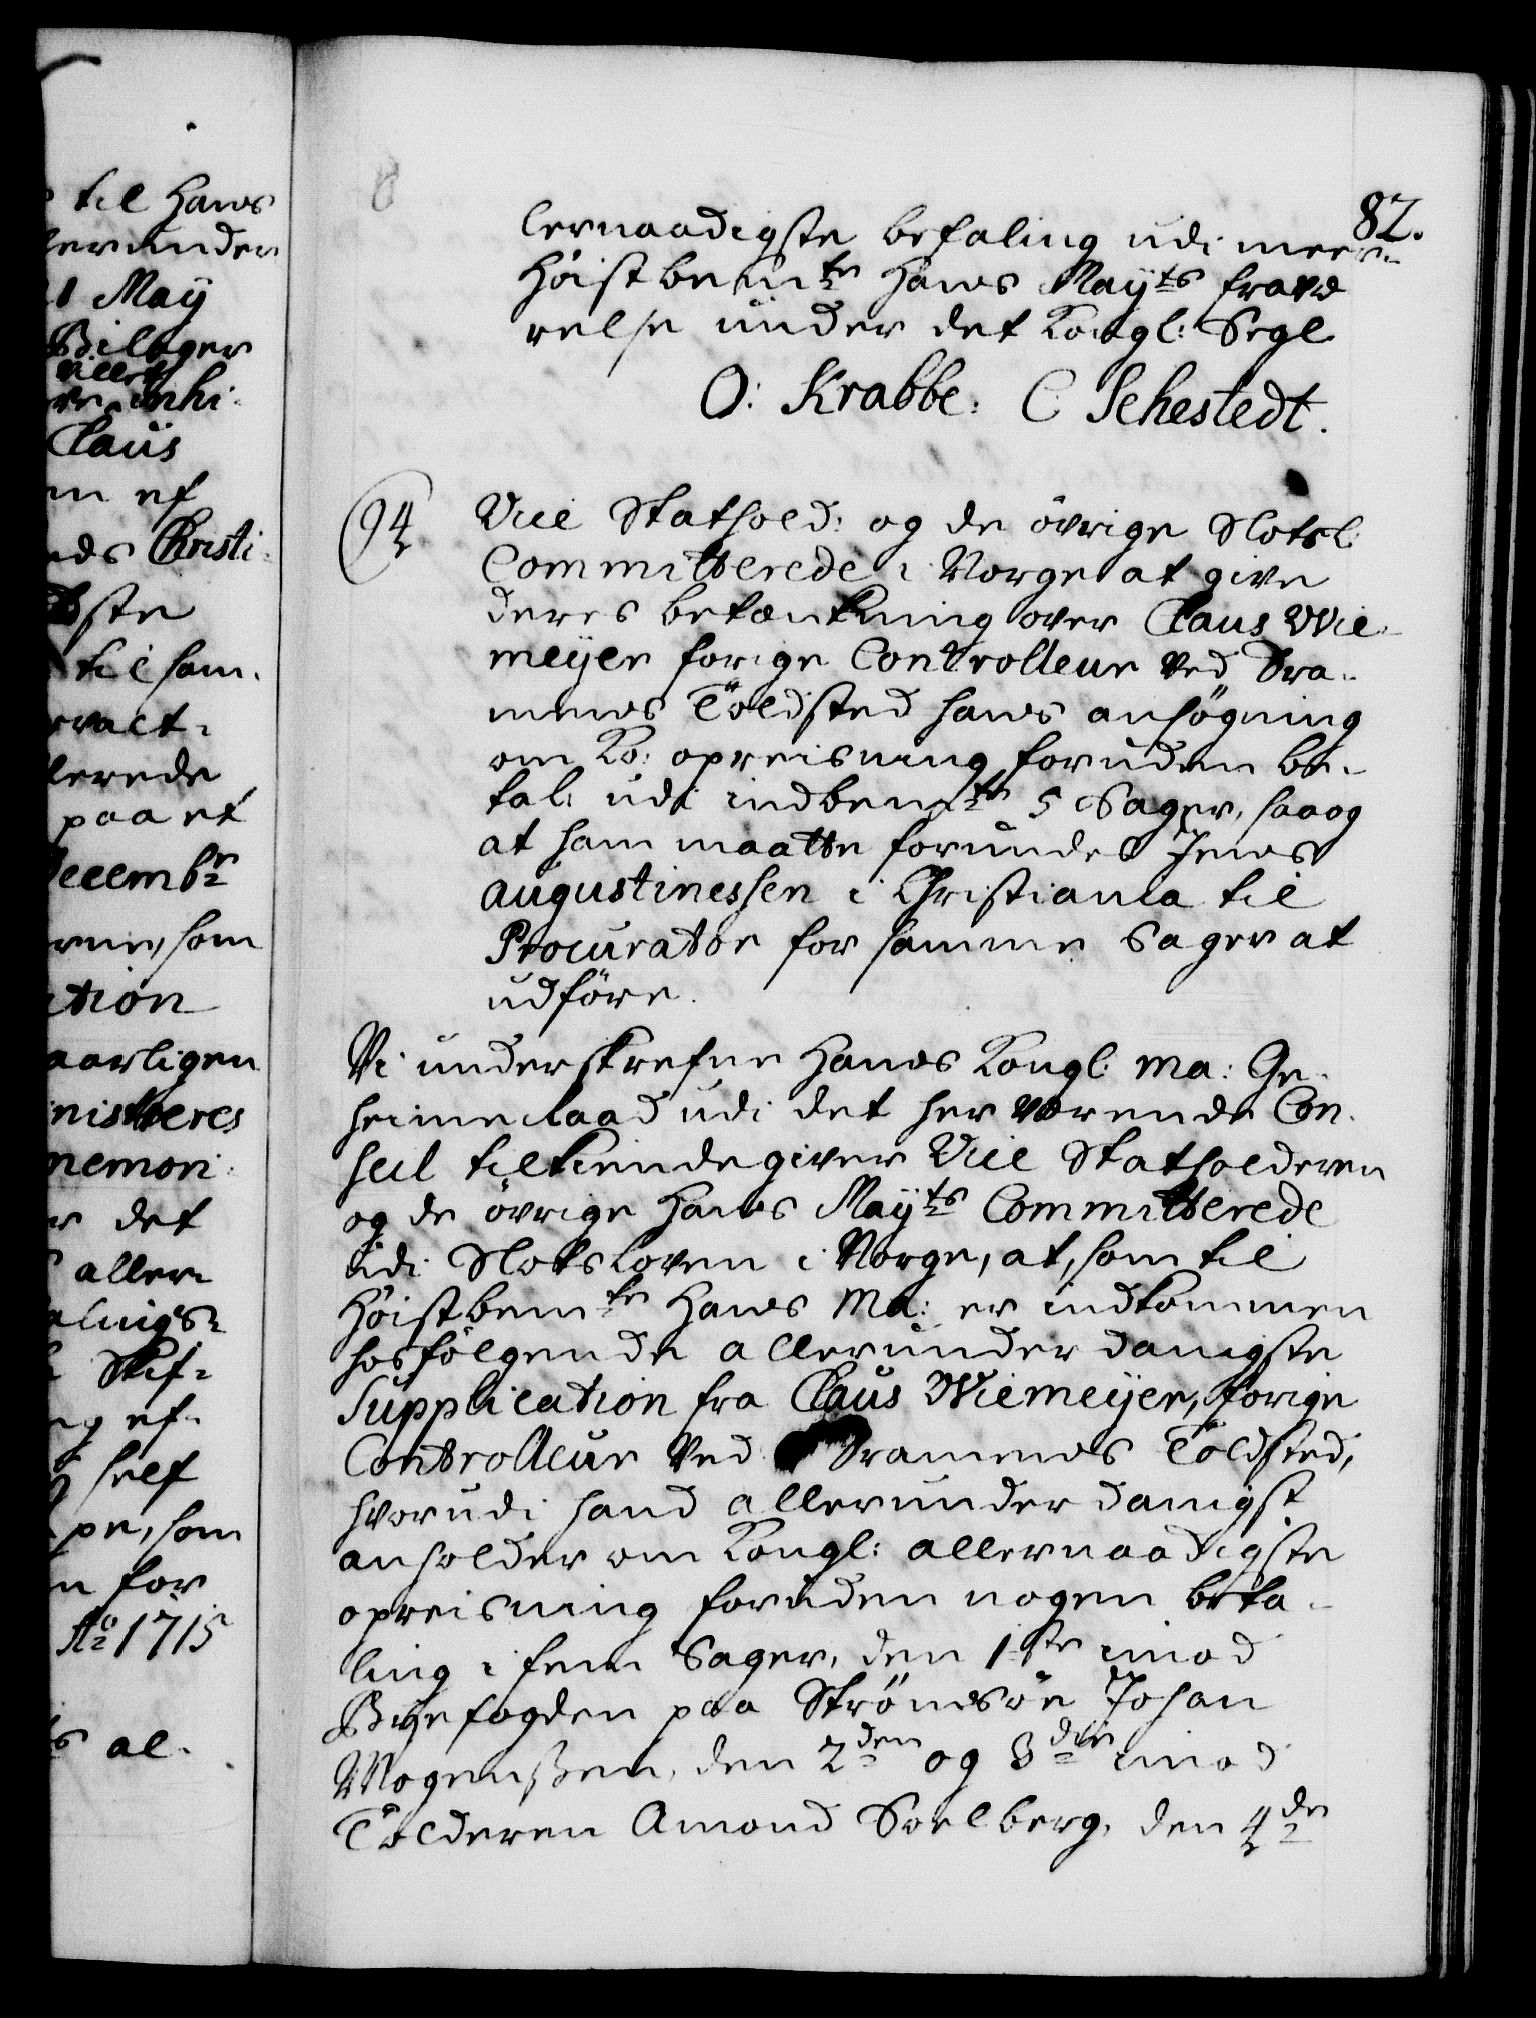 til Hans
lerunder
11 May
Bilager
villet
inhi-
Claus
ef
Christi-
til ham.
paa et
Decembr
som
ation
aarligen
nistreres
memori-
det
aller
Skif-
ef-
self
som
for
Ao 1715
al-
82.
lernaadigste befaling udi meer-
Høistbemte Hans Mayts fravæ
relse under det Kongl: Segl.
O: Krabbe: C Sehestedt.
94 Vice Stathold: og de övrige Slotsl:
Committerede i Norge at give
deres betænkning over Claus Wie-
meyer forige Controlleur ved Dra-
mens Toldsted hans ansögning
om Ko: opreisning foruden be-
tal: udi indbemte 5 Sager, saa og
at ham maatte forundes Jens
Augustinessen i Christiania til
Procurator for samme Sager at
udföre.
Vi underskrefne Hans Kongl: Ma: Ge-
heimeraad udi det her værende Con-
seil tilkiendegiver Vice Statholderen
og de övrige Hans Mayts Committerede
udi Slotsloven i Norge, at, som til
Høistbemte Hans Ma: er indkommen
hosfölgende allerunderdanigste
Supplication fra Claus Wiemeyer, forige
Controlleur ved Dramens Toldsted,
hvorudi hand allerunderdanigst
anholder om Kongl: allernaadigste
opreisning foruden nogen beta-
ling i fem Sager, den 1ste imod
Byefogden paa Strömsöe Johan
Mogenssen, den 2den og 3die imod
Tolderen Amond Soelberg, den 4de